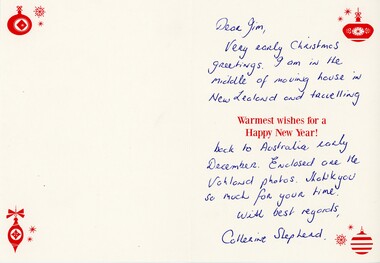 Dear Jim,
Very early Christmas
greetings. I am in the
middle of moving house in
New Zealand and travelling
Warmest wishes for a
Happy New Year!
back to Australia early
December. Enclosed are the
Vohland photos. Thank you
so much for your time.
With best regards,
Catherine Shepherd.